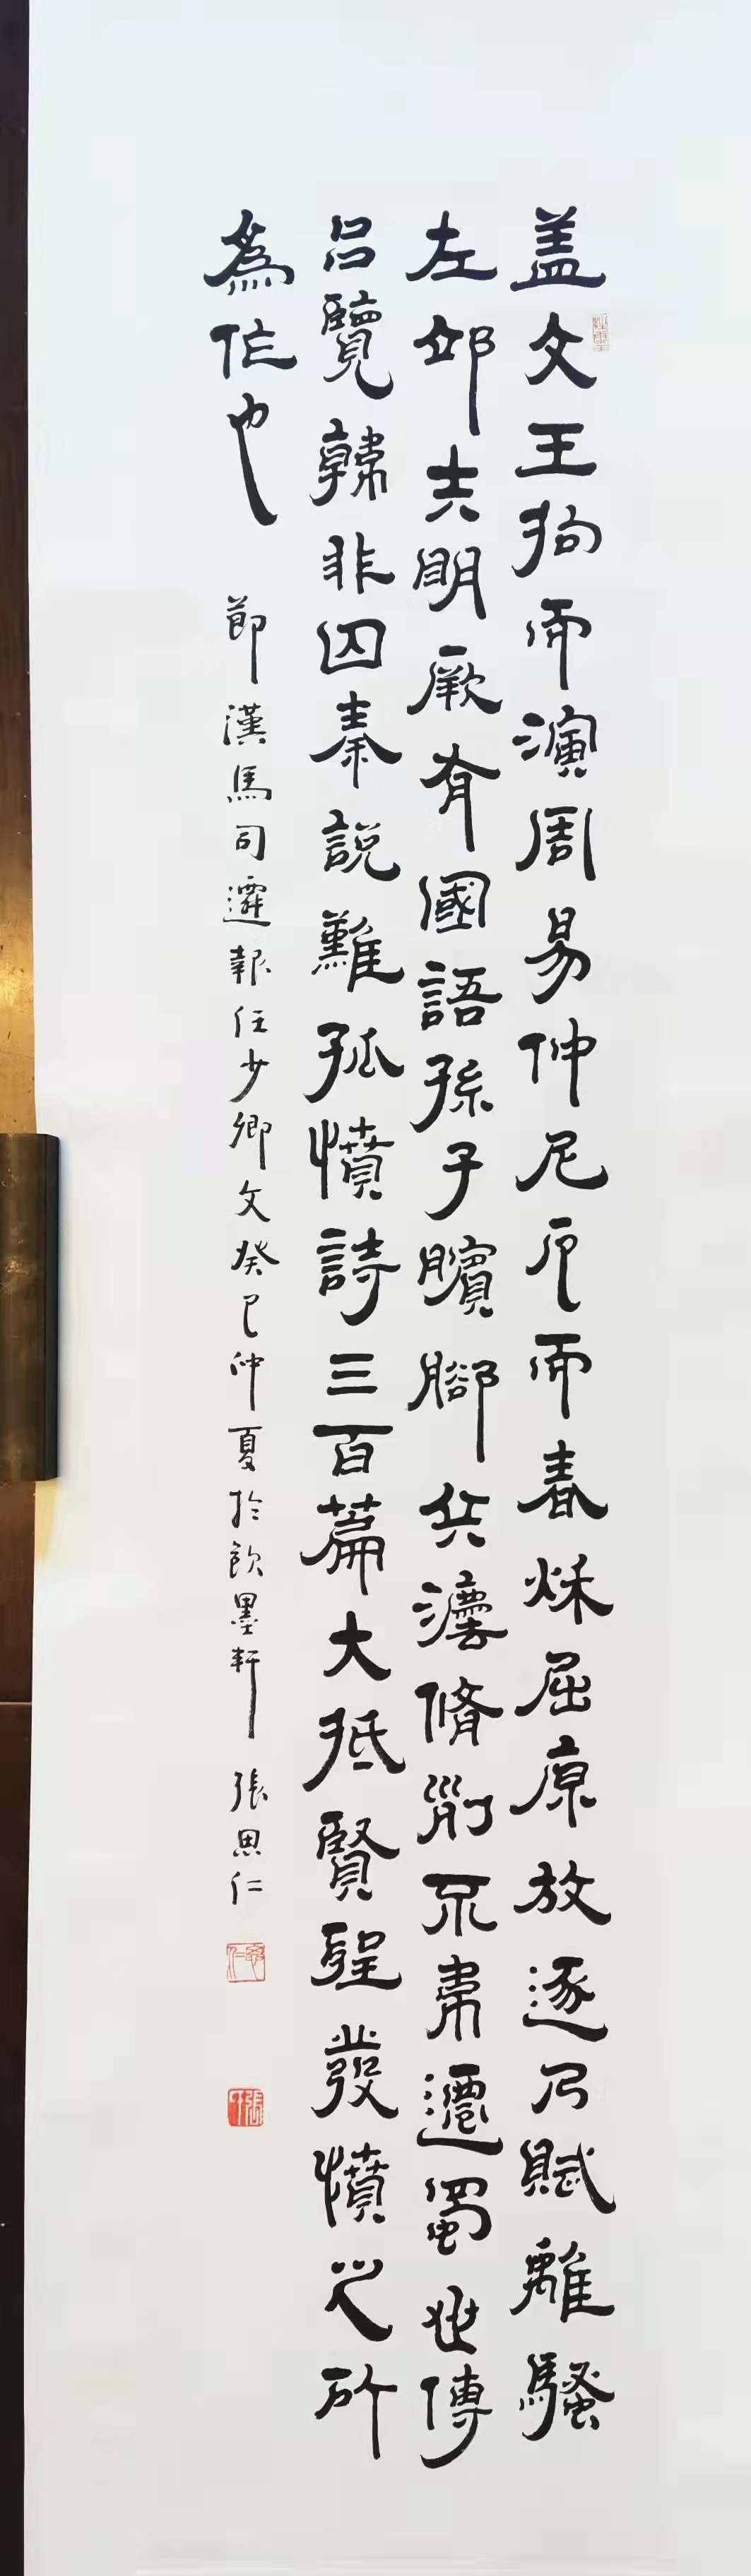 盖文王拘而演周易仲尼厄而春秋屈原放逐乃賦離騷
左邱失明厥有國語孫子臏腳兵灋脩列不韋遷蜀世傳
吕覽韓非囚秦說難孤憤詩三百篇大抵賢聖發憤之所
為作也 節漢馬司遷報任少卿文癸巳仲夏於飲墨軒 張思仁